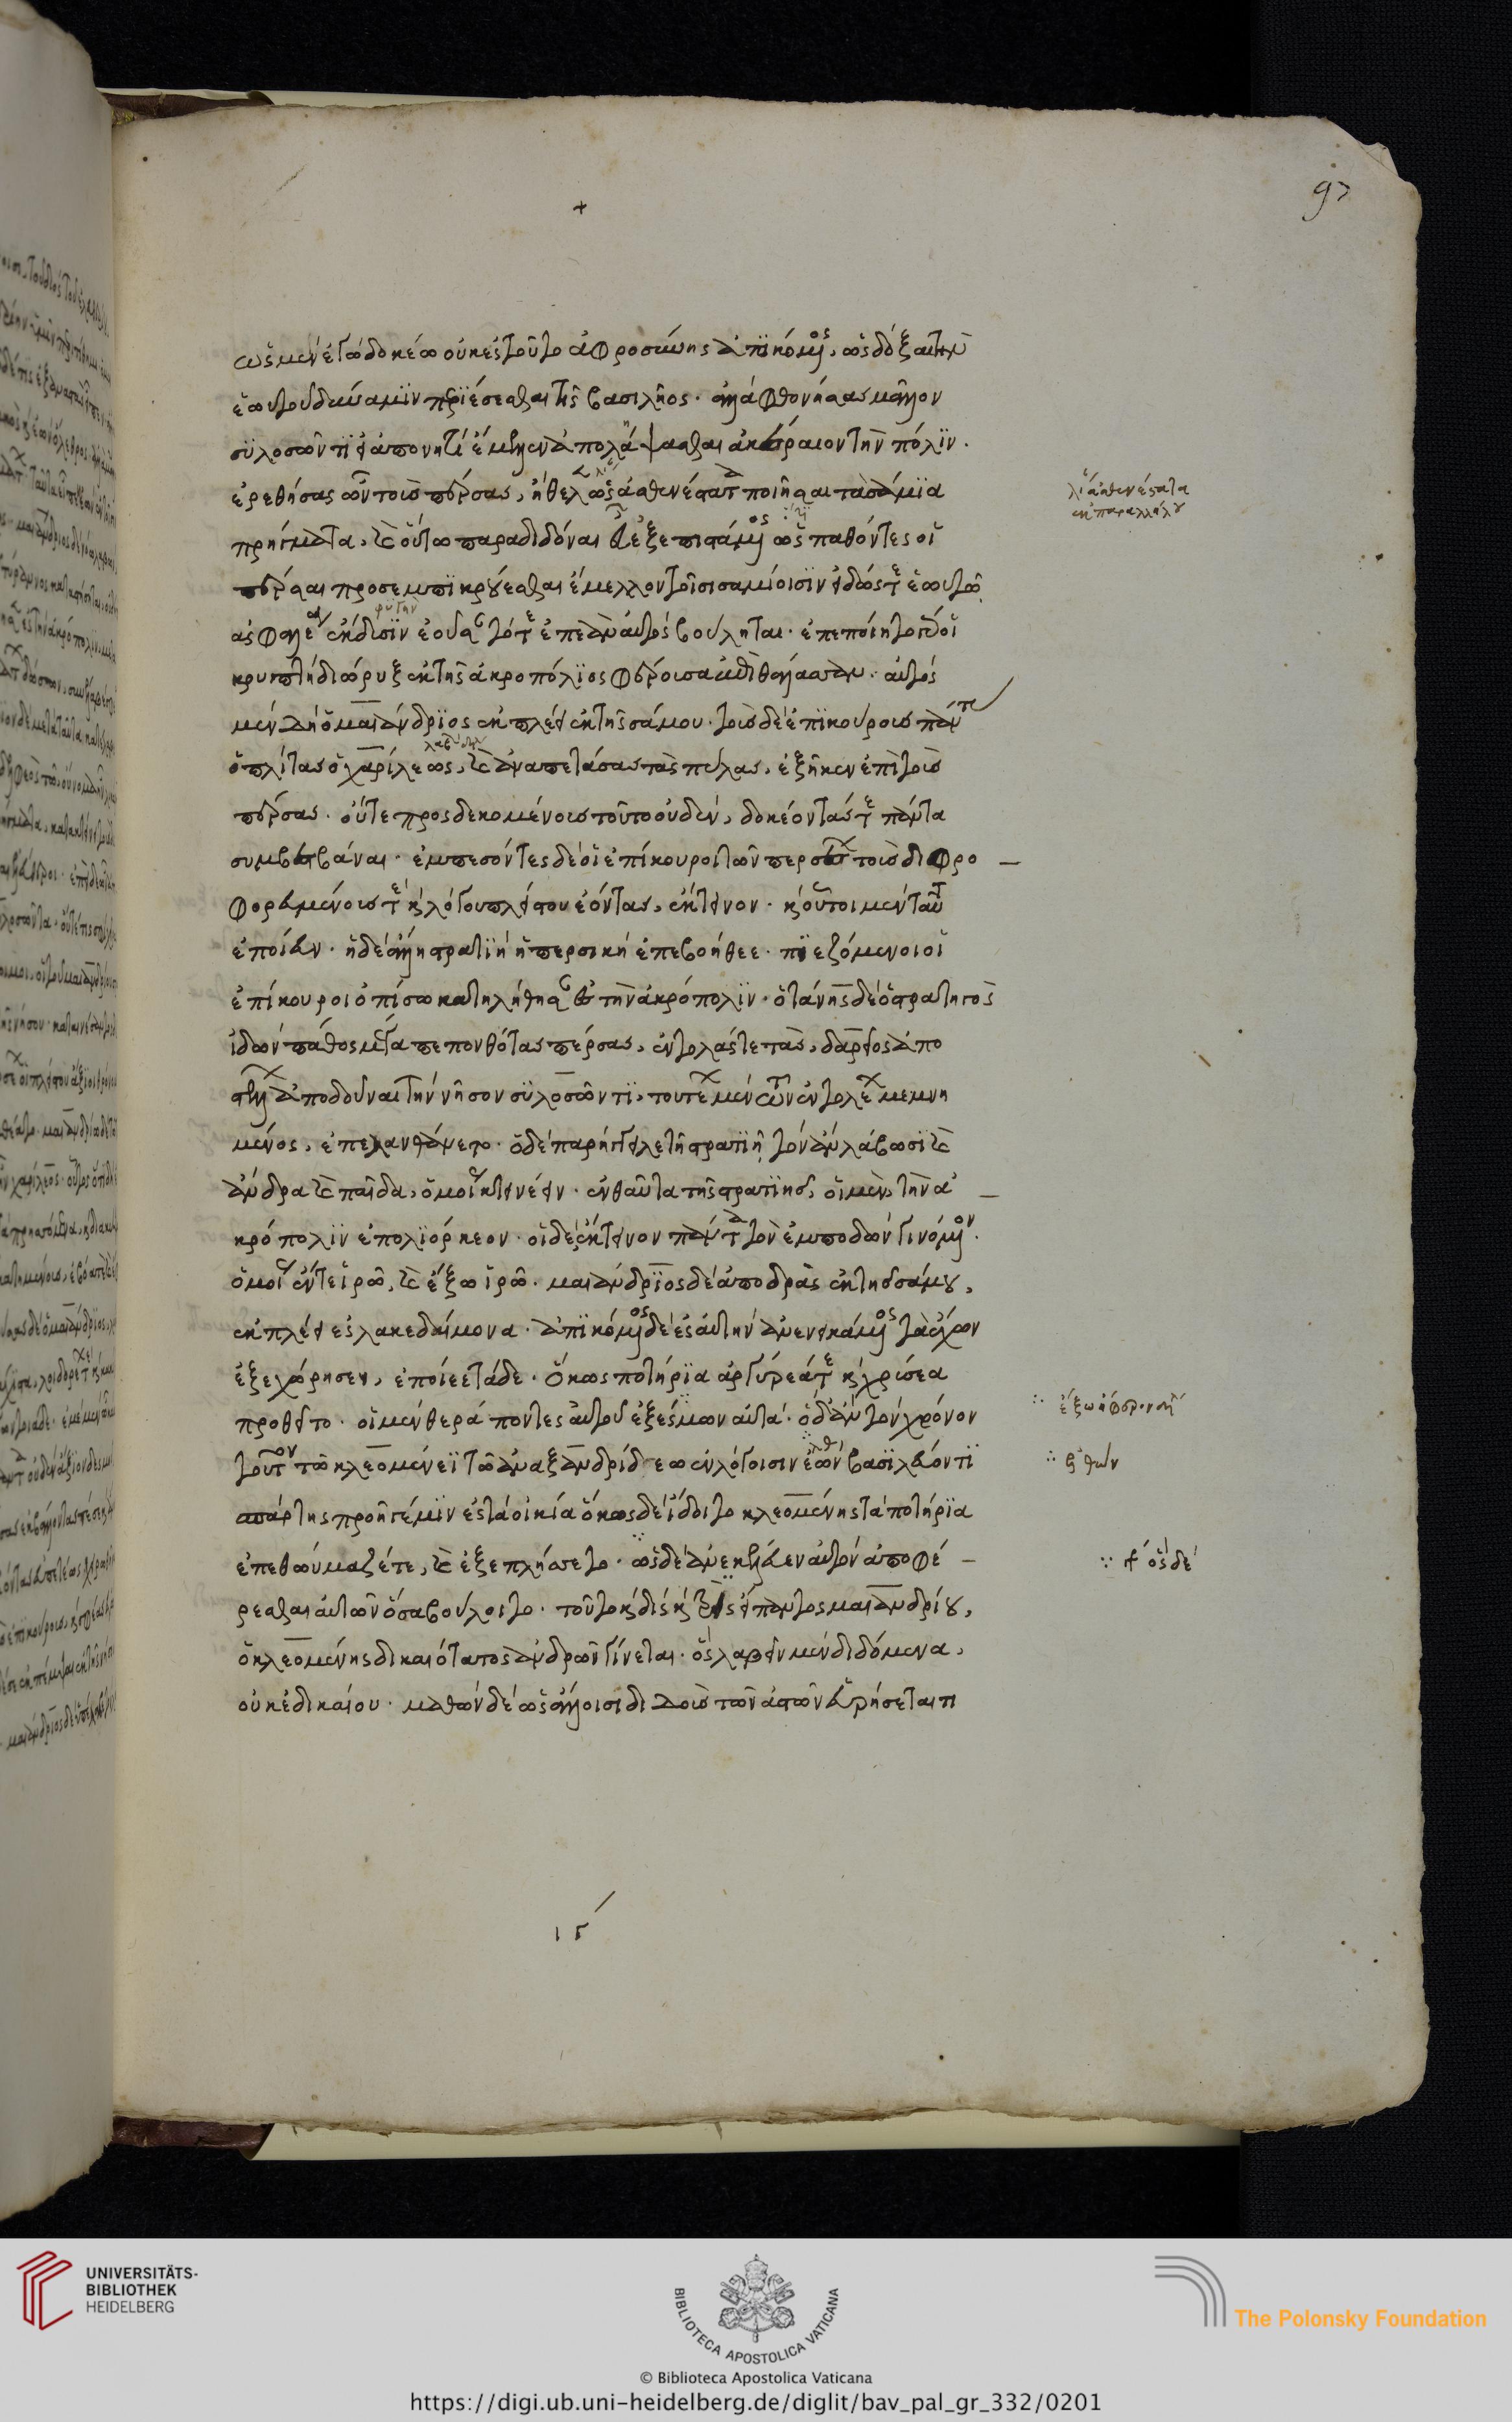 +
97
ὡς μὲν ἐγὼ δοκέω οὐκ ἐς τοῦτο ἀφροσύνης ἀπϊκόμενος, ὡς δόξαι τὴν
ἑωυτοῦ δύναμϊν περιέσεσθαι τῆς βασιλῆος. ἀλλὰ φθονήσας μᾶλλον
συλοσῶντϊ εἰ ἀπονητὶ ἔμελλεν ἀπολάμψασθαι ἀκέραιον τὴν πόλϊν.
ἐρεθήσας ὦν τοὺς πέρσας, ἤθελ ὡς ἀσθενέστατα ποιῆσαι τὰ σάμϊα
πρήγματα, καὶ οὕτω παραδιδόναι εὖ ἐξεπιστάμενος ὡς παθόντες οἱ
πέρσαι προσεμπϊκρούεσθαι ἔμελλον τοῖσι σαμίοισϊν εἰδώς τε ἑωυτῷ
ἀσφαλέα ἔκδυσϊν ἐοῦσαν τότε ἐπεὰν αὐτὸς βούληται. ἐπεποίητο γάρ οἱ
κρυπτὴ διώρυξ ἐκ τῆς ἀκροπόλϊος φέρουσα ἐπὶ θάλασσαν. αὐτὸς
μὲν δὴ ὁ μαιάνδρϊος ἐκπλεῖ ἐκ τῆς σάμου. τοὺς δὲ ἐπϊκούρους πάντας
ὁπλίσας ὁ χαρίλεως, καὶ ἀναπετάσας τὰς πύλας, ἐξῆκεν ἐπὶ τοὺς
πέρσας. οὔτε προσδεκομένους τοῦτο οὐδὲν, δοκέοντάς τε πάντα
συμβεβάναι. ἐμπεσόντες δὲ οἱ ἐπίκουροι τῶν περσέων τοὺς διφρο
φορευμένους τε καὶ λόγου πλείστου ἐόντας, ἔκτεινον. καὶ οὗτοι μὲν ταῦτα
ἐποίευν. ἡ δὲ ἄλλη στρατϊὴ ἡ περσικὴ ἐπεβοήθεε. πϊεζόμενοι οἱ
ἐπίκουροι ὀπίσω κατηλήθησαν ἐς τὴν ἀκρόπολϊν. ὀτάνης δὲ ὁ στρατηγὸς
ἰδὼν πάθος μέγα πεπονθότας πέρσας, ἐντολάς τε τὰς, δαρεῖος ἀπο
στέλλων ἀποδοῦναι τὴν νῆσον συλοσῶντϊ, τουτέων μὲν ὦν ἐντολέων μεμνη
μένος, ἐπελανθάνετο. ὁ δὲ παρήγγειλε τῇ στρατϊῇ, τὸν ἂν λάβωσϊ καὶ
ἄνδρα καὶ παῖδα, ὁμοίως κτείνειν. ἐνθαῦτα τῆς στρατϊης, οἱ μὲν, τὴν ἀ
κρόπολϊν ἐπολϊόρκεον. οἱ δὲ ἔκτεινον πάντα τὸν ἐμποδὼν γινόμενον.
ὁμοίως ἔν τε ἱρῷ, καὶ ἔξω ἱρῷ. μαιάνδρϊος δὲ ἀποδρὰς ἐκ τῆς σάμου,
ἐκπλέει ἐς λακεδαίμονα. ἀπϊκόμενος δὲ ἐς αὐτὴν ἀνενεικάμενος τὰ ἔχων
ἐξεχώρησεν, ἐποίεε τάδε. ὅκως ποτήρϊα ἀργύρεά τε καὶ χρύσεα
προθεῖτο. οἱ μὲν θεράποντες αὐτοῦ ἐξέσμων αὐτά. ὁ δ' ἂν τὸν χρόνον
τοῦτον τῷ κλεομένεϊ τῷ ἀναξανδρίδεω ἐν λόγοισιν ἐὼν βασϊλεύοντϊ
σπάρτης προῆγέ μϊν ἐς τὰ οἰκία ὅκως δὲ ἴδοιτο κλεομένης τὰ ποτήρϊα
ἐπεθωύμαζέ τε, καὶ ἐξεπλήσσετο. ὡς δὲ ἂν ἐκέλευεν αὐτὸν ἀποφέ
ρεσθαι αὐτῶν ὅσα βούλοιτο. τοῦτο καὶ δὶς καὶ τρὶς εἴπαντος μαιανδρίου,
ὁ κλεομένης δικαιότατος ἀνδρῶν γίνεται. ὃς λαβεῖν μὲν διδόμενα,
οὐκ ἐδικαίου. μαθὼν δὲ ὡς ἄλλοισι διδοὺς τῶν ἀστῶν εὑρήσεται τι
ἐλθών
ιϛ
UNIVERSITÄTS-
BIBLIOTHEK
HEIDELBERG
BIBLIOTECA APOSTOLICA VATICANA
The Polonsky Foundation
© Biblioteca Apostolica Vaticana
https://digi.ub.uni-heidelberg.de/diglit/bav_pal_gr_332/0201